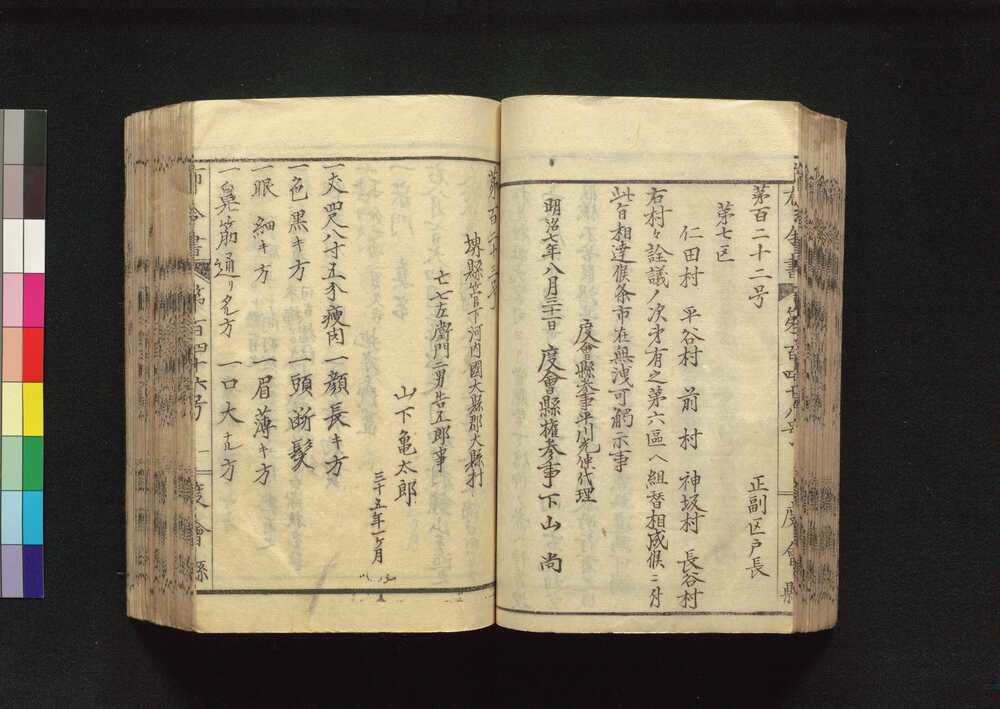 第百二十二号
正副区戸長
第七区
仁田村 平谷村 前村 神坂村 長谷村
右村々詮議ノ次才有之第六區ヘ組替相成候ニ付
此旨相達候条市在無洩可觸示事
度會縣参事平川光伸代理
明治七年八月三十一日 度會縣権参事下山尚
第百二十三号
堺縣管下河内國大縣郡大縣村
七左衛門二男吉五郎事
山下亀太郎
三十五年一ヶ月
一丈四尺八寸五分瘦肉 一顔長キ方
一色黒キ方 一頭断髪
一眼細キ方 一眉薄キ方
一鼻筋通リタル方 一口大ナル方
布令書 第百四十六号 度會縣